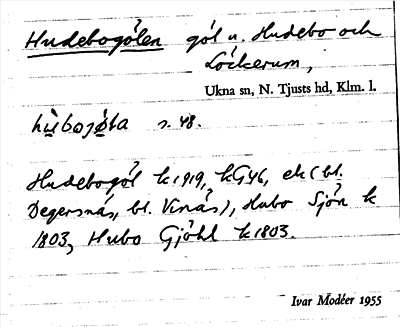 Hudebogölen göl n. Hudebo och
Löckerum,
Ukna sn, N. Tjusts hd, Klm. l.
s. 48.
Hudebogöl k 1919, kG46, ek (bl.
Degersnäs, bl. Vinäs), Hubo Sjön k
1803, Hubo Gjöhl k 1803.
Ivar Modéer 1955